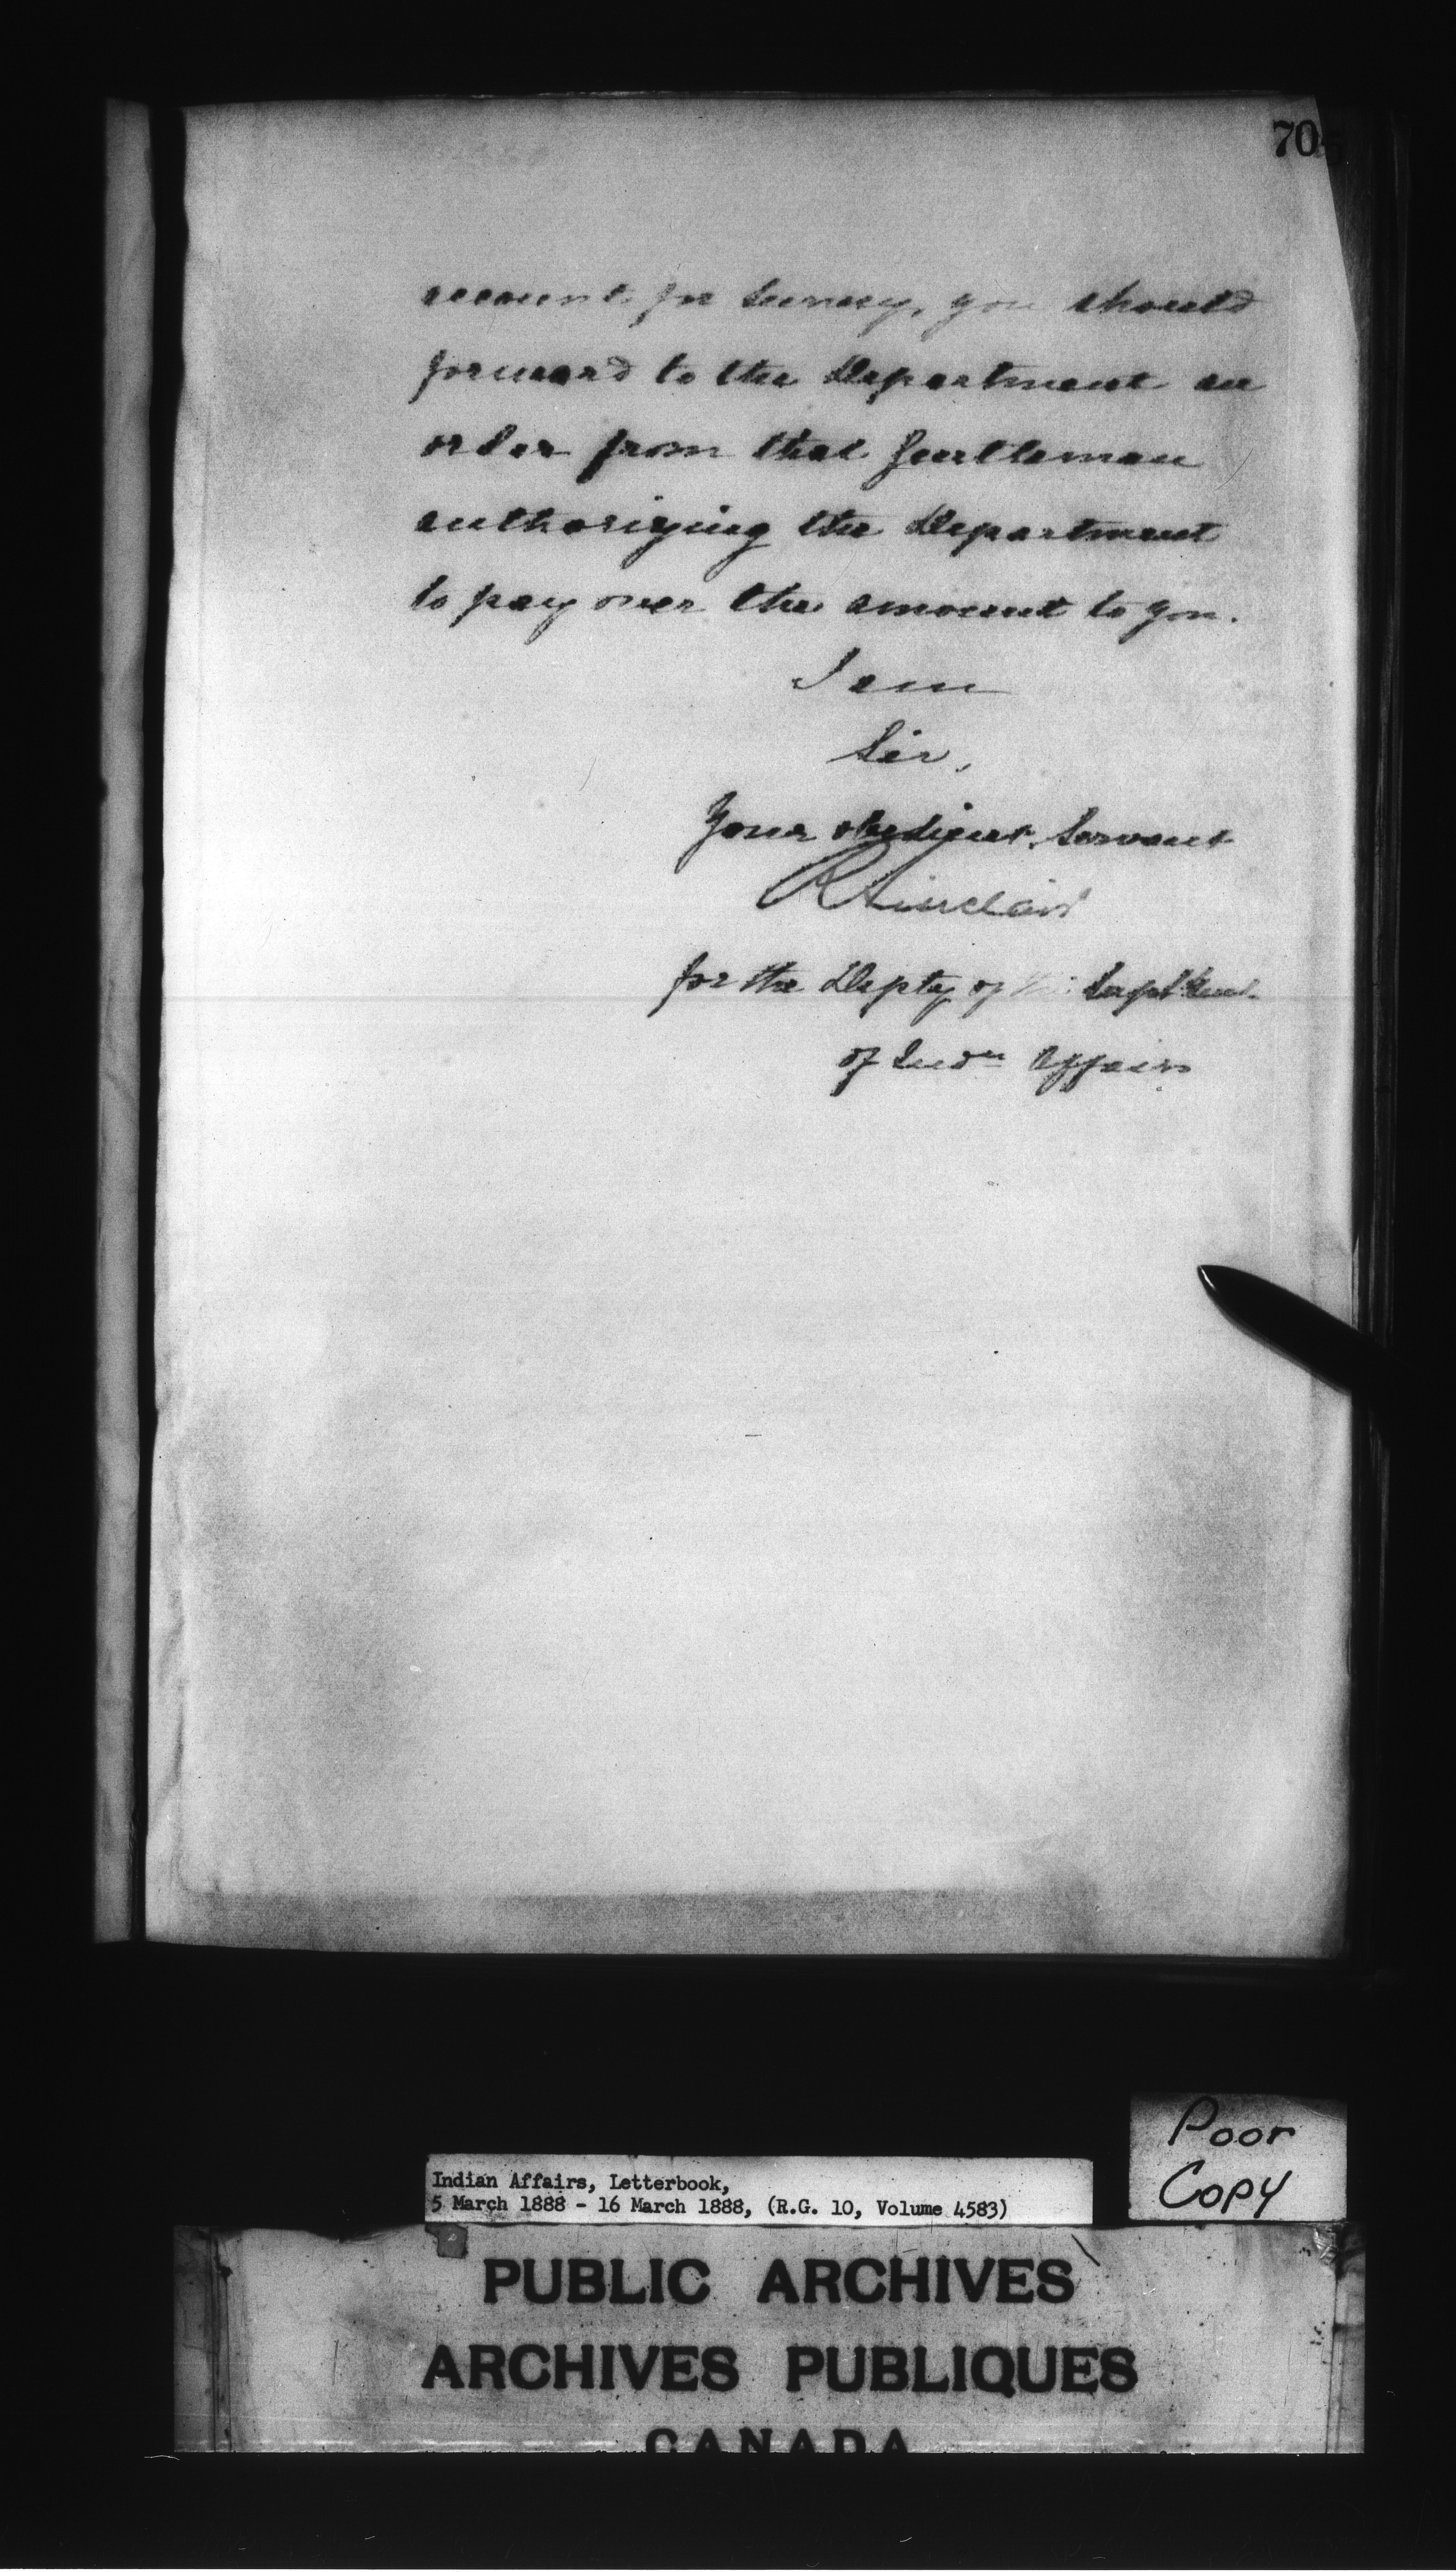 705
account for survey, you should
forward to the Department an
order from that Gentleman
authorizing the Department
to pay over the amount to you.
I am
Sir,
Your obedient Servant
R Sinclair
for the Depty of the Supt Genl.
of Indn Affairs
Poor
Copy
Indian Affairs, Letterbook,
5 March 1888 - 16 March 1888, (R.G. 10, Volume 4583)
PUBLIC ARCHIVES
ARCHIVES PUBLIQUES
CANADA